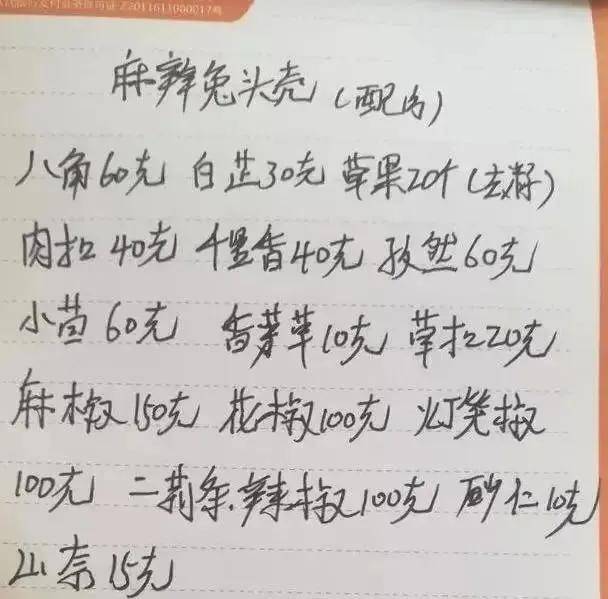 许可证 Z2011611000017号
麻辣兔头壳(配方)
八角60克 白芷30克 草果20个(去籽)
肉扣40克 千里香40克 孜然60克
小茴60克 香茅草10克 草扣20克
麻椒150克 花椒100克 灯笼椒
100克 二荆条.辣椒100克 砂仁10克
山奈15克